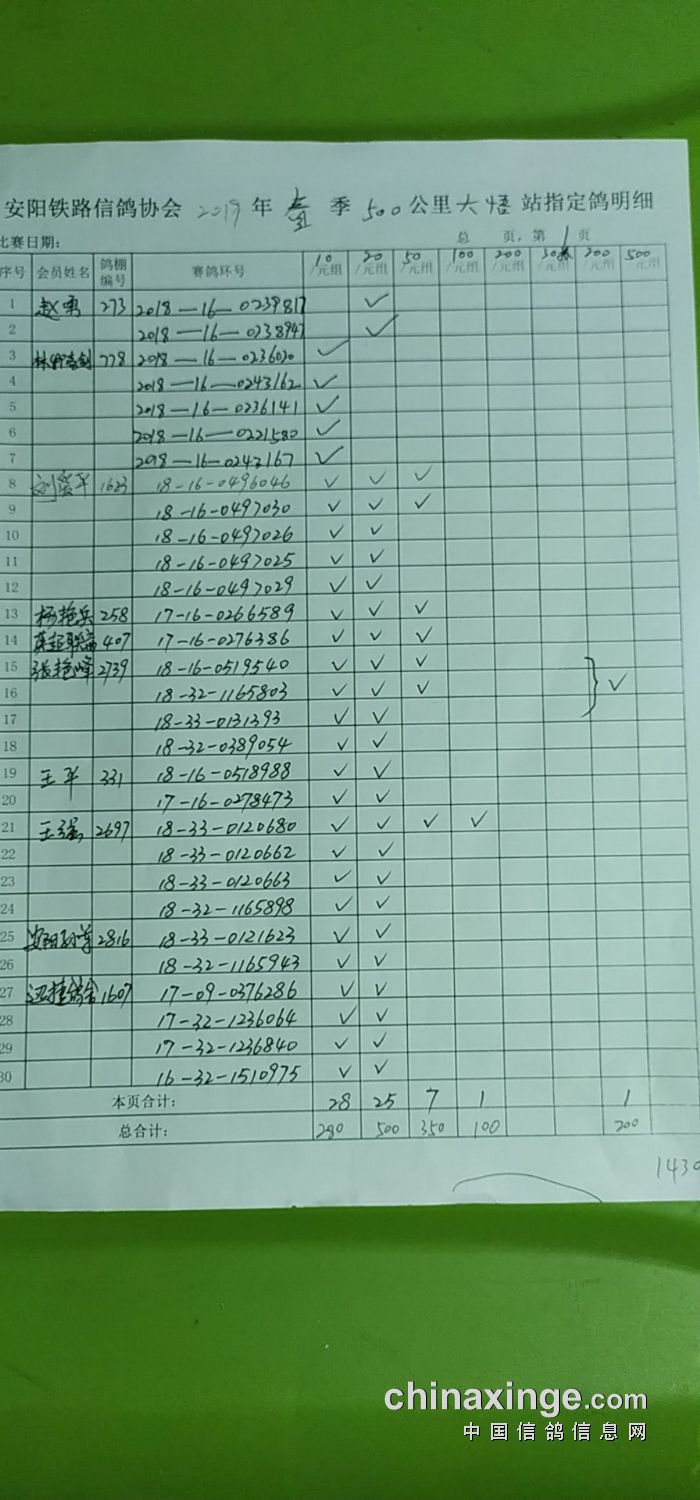 安阳铁路信鸽协会 2019 年 春 季 500 公里 大悟 站指定鸽明细
比赛日期: 总 页,第 1 页
序号 会员姓名 鸽棚编号 赛鸽环号 10/元组 20/元组 50/元组 100/元组 200/元组 30 200/元组 500/元组
1 赵勇 273 2018—16—0239817 ✓
2 2018—16—0238947 ✓
3 778 2018—16—0236020 ✓
4 2018—16—0243162 ✓
5 2018—16—0236141 ✓
6 2018—16—0221580 ✓
7 2018—16—0243167 ✓
8 刘爱平 1623 18-16-0496046 ✓ ✓ ✓
9 18-16-0497030 ✓ ✓ ✓
10 18-16-0497026 ✓ ✓
11 18-16-0497025 ✓ ✓
12 18-16-0497029 ✓ ✓
13 杨艳兵 258 17-16-0266589 ✓ ✓ ✓
14 407 17-16-0276386 ✓ ✓ ✓
15 张艳峰 2739 18-16-0519540 ✓ ✓ ✓
16 18-32-1165803 ✓ ✓ ✓ } ✓
17 18-33-0131393 ✓ ✓
18 18-32-0389054 ✓ ✓
19 王平 331 18-16-0518988 ✓ ✓
20 17-16-0278473 ✓ ✓
21 王强 2697 18-33-0120680 ✓ ✓ ✓ ✓
22 18-33-0120662 ✓ ✓
23 18-33-0120663 ✓ ✓
24 18-32-1165898 ✓ ✓
25 安阳 2816 18-33-0121623 ✓ ✓
26 18-32-1165943 ✓ ✓
27 鸽舍 1607 17-09-0376286 ✓ ✓
28 17-32-1236064 ✓ ✓
29 17-32-1236840 ✓ ✓
30 16-32-1510975 ✓ ✓
本页合计: 28 25 7 1 1
总合计: 280 500 350 100 200
1430
chinaxinge.com
中国信鸽信息网